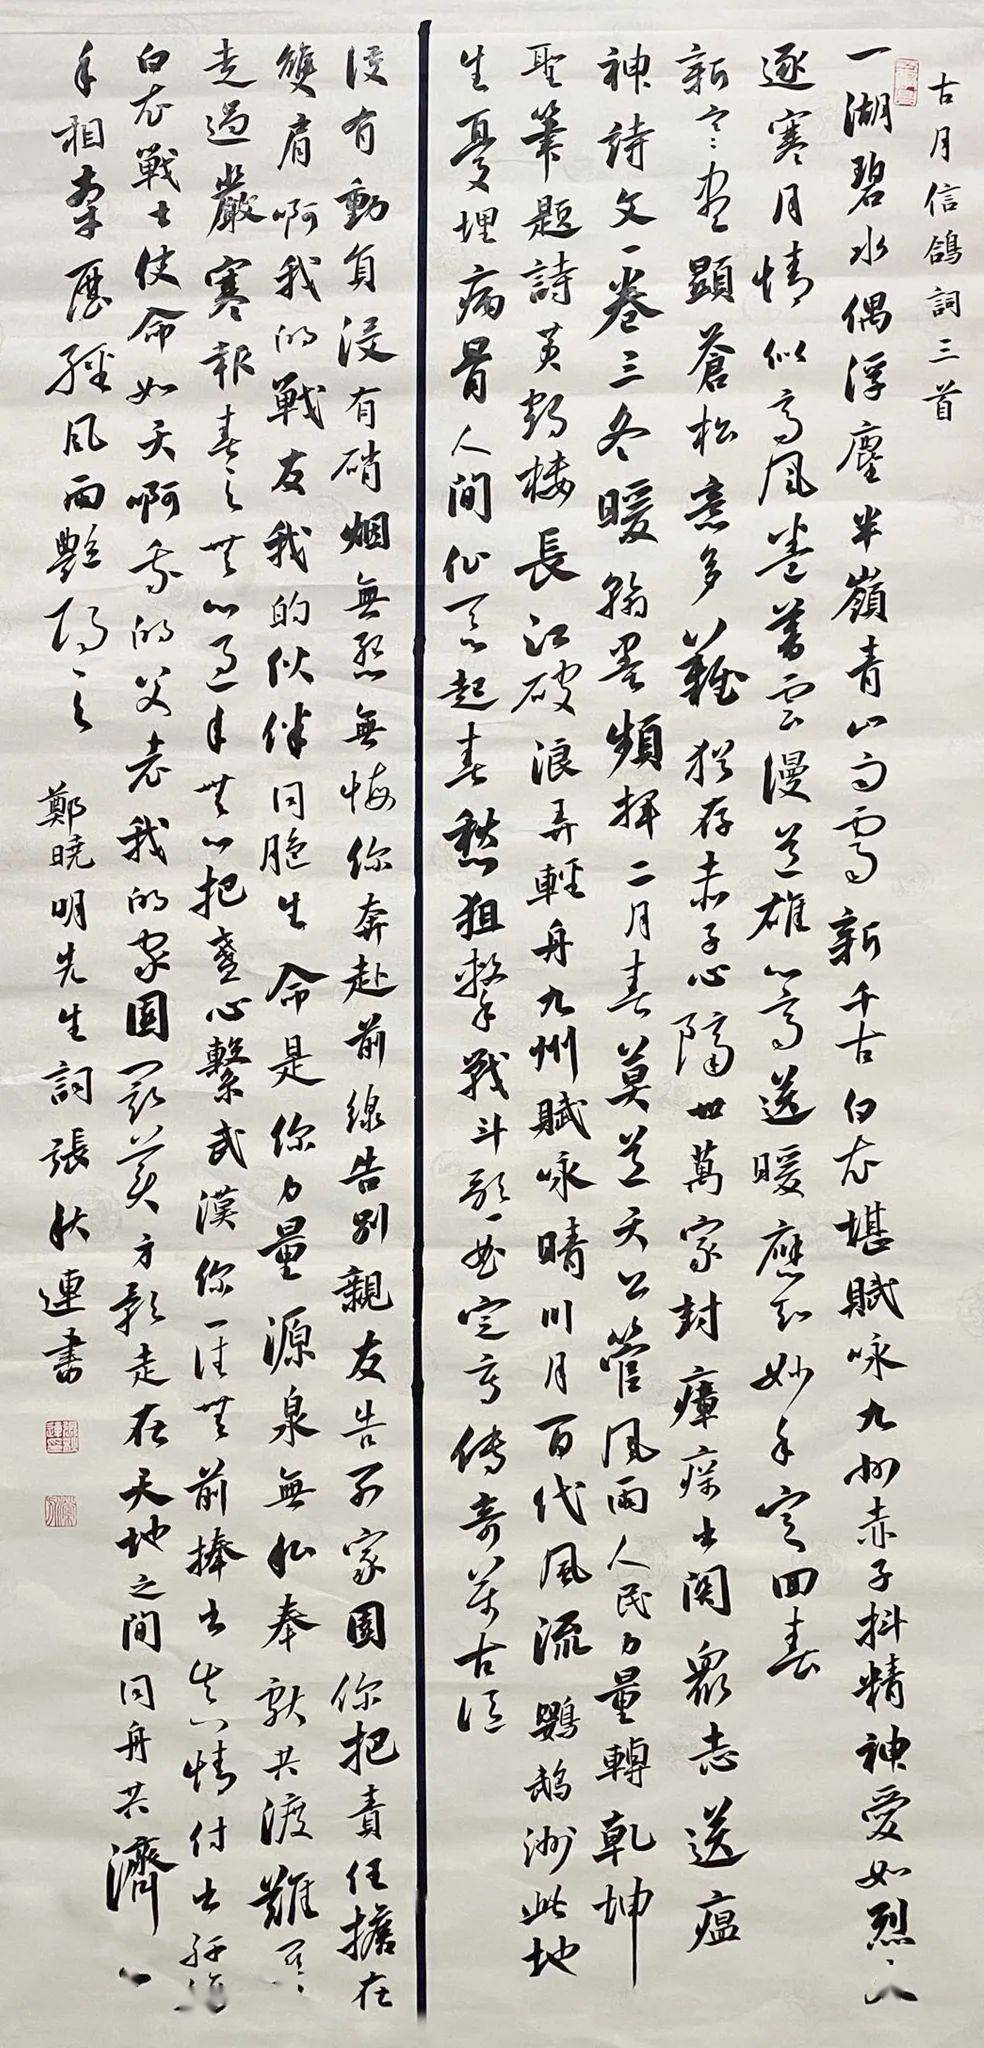 古月信鴿詞三首
一湖碧水偶浮塵半嶺青山雨雪新千古白衣堪賦咏九州赤子抖精神愛如烈火
逐寒月情似高風卷暮雲漫道雄心寄送暖應知妙手定回春
新冠盡顯蒼松意多難猶存赤子心隔世萬家封瘴癘出關眾志送瘟
神詩文一卷三冬暖翰墨頻揮二月春莫道天公管風雨人民力量轉乾坤
聖筆題詩黃鶴樓長江破浪弄輕舟九州賦咏晴川月百代風流鸚鵡洲此地
生憂埋病骨人間起春愁狙擊戰斗歌一曲定音傳奇萬古
沒有動員沒有硝烟無怨無悔你奔赴前線告別親友告別家園你把責任擔在
雙肩啊我的戰友我的伙伴同胞生命是你力量源泉無私奉獻共渡難
走過嚴寒報春之心手把盞心繫武漢你一往無前捧出情付出
白衣戰士使命如天啊我的父老我的家園一方走在天地之間同舟共濟
手相牽歷經風雨艷陽
鄭曉明先生詞張秋連書